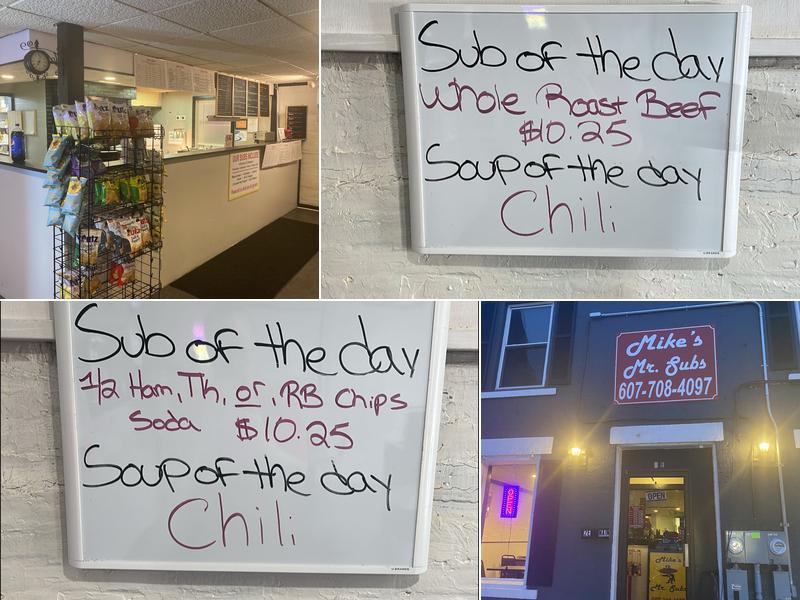 OUR SUBS INCLUDE
Sub of the day
Whole Roast Beef
$10.25
Soup of the day
Chili
Sub of the day
1/2 Ham, Th, or, RB Chips
Soda $10.25
Soup of the day
Chili
Mike's
Mr. Subs
607-708-4097
OPEN
OPEN
Mike's
Mr. Subs